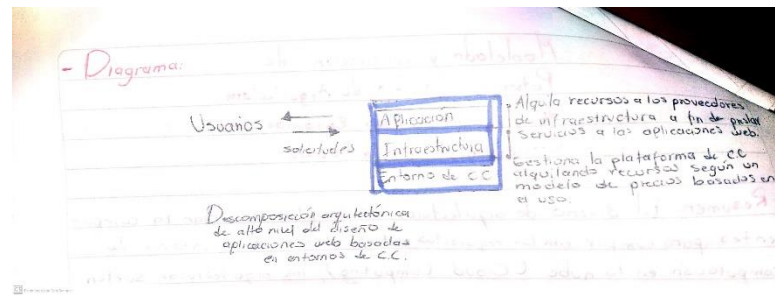 - Diagrama:
Usuarios
solicitudes
Aplicación
Infraestructura
Entorno de C.C
• Alquila recursos a los proveedores
de infraestructura a fin de prestar
servicios a las aplicaciones web.
• Gestiona la plataforma de C.C
alquilando recursos según un
modelo de precios basados en
el uso.
Descomposición arquitectónica
de alto nivel del diseño de
aplicaciones web basadas
en entornos de C.C.